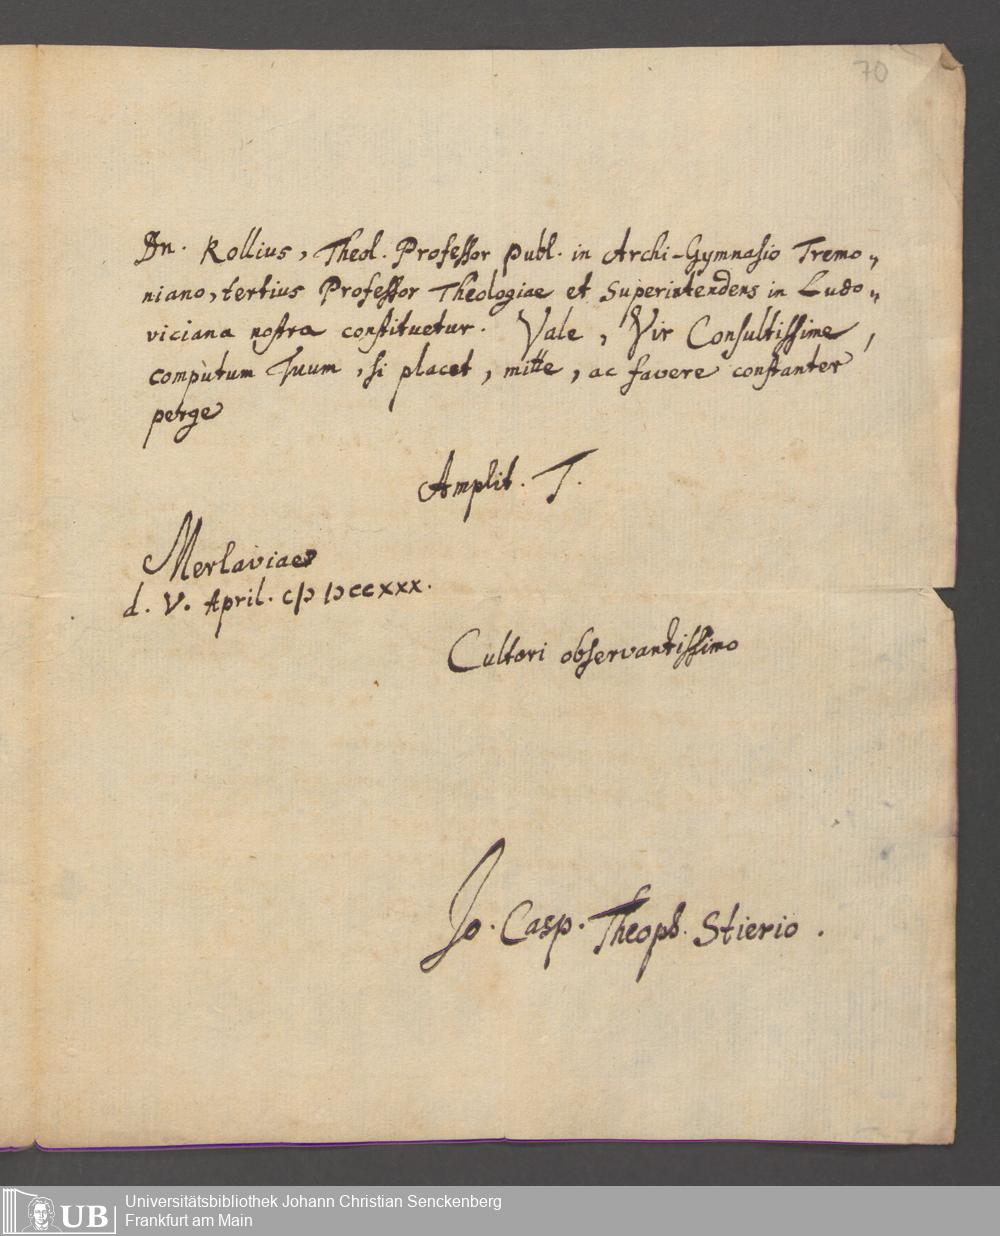 70
Dn. Kollius, Theol. Professor publ. in Archi-Gymnasio Tremo„
niano, tertius Professor Theologiae et Superintendens in Ludo„
viciana nostra constituetur. Vale, Vir Consultissime,
computum Tuum, si placet, mitte, ac favere constanter
perge
Amplit. T.
Merlaviae
d. V. April. cIɔ Iɔccxxx.
Cultori observantissimo
Jo. Casp. Theoph. Stierio.
UB
Universitätsbibliothek Johann Christian Senckenberg
Frankfurt am Main